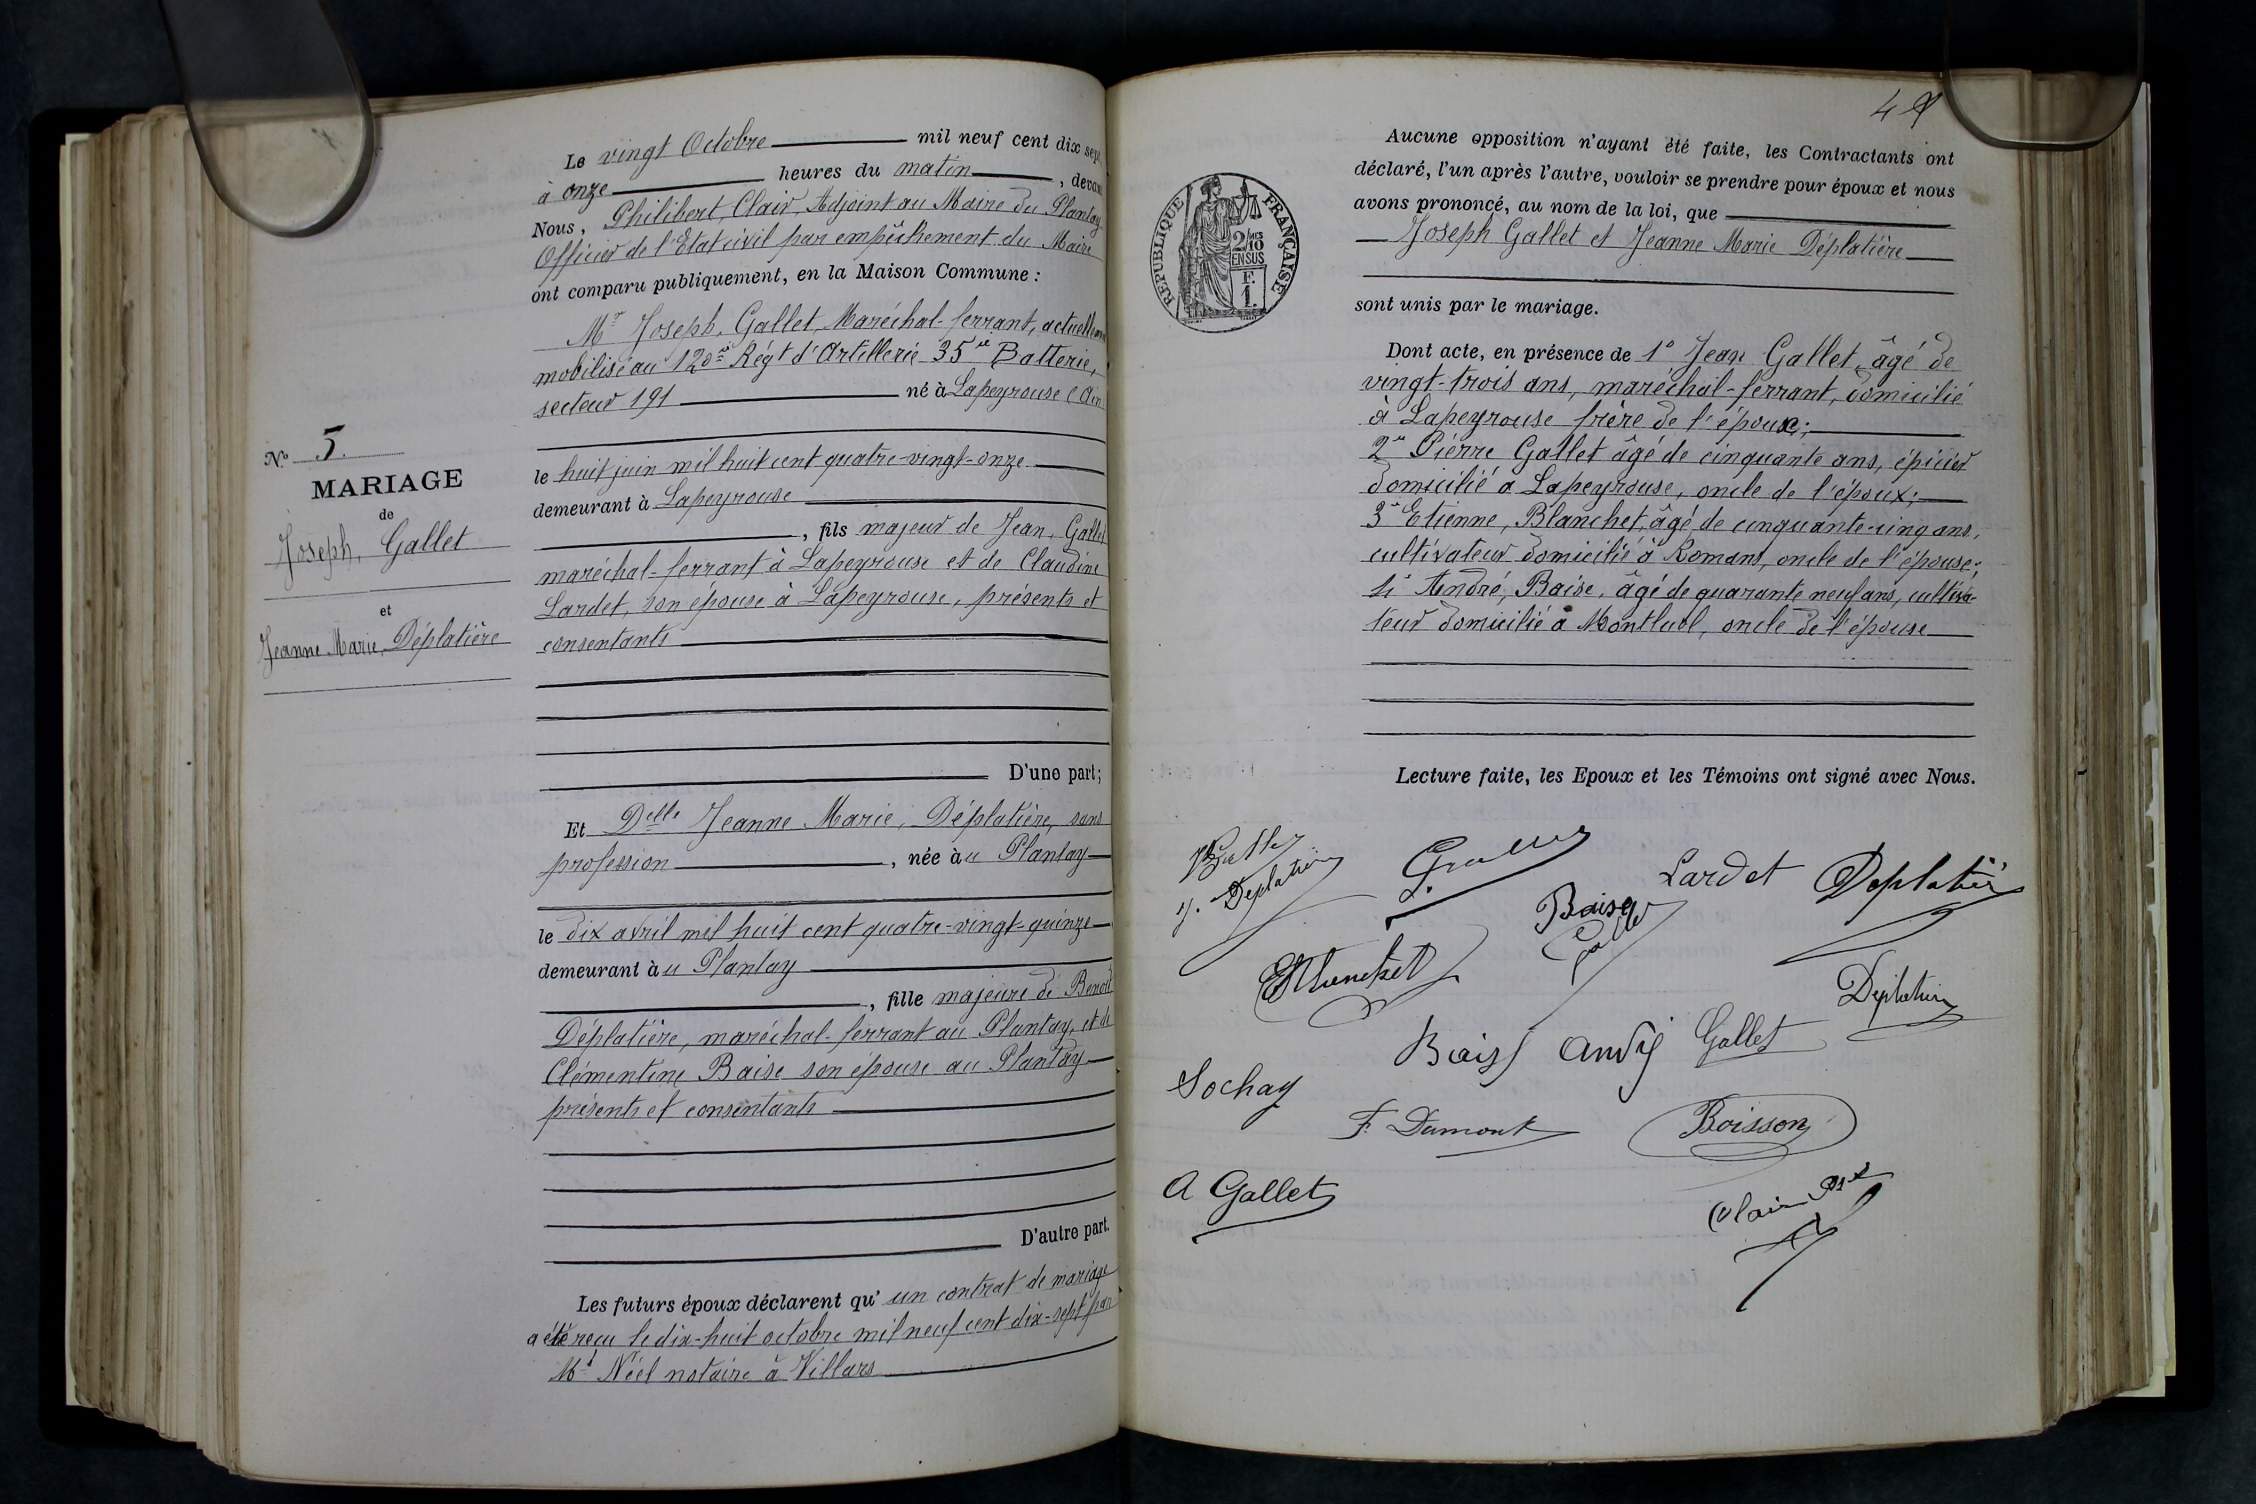 Le vingt Octobre mil neuf cent dix sept
à onze heures du matin, devant
Nous, Philibert, Clair, Adjoint au Maire du Plantay
Officier de l'Etat civil par empêchement du Maire
ont comparu publiquement, en la Maison Commune :
Mr Joseph, Gallet, Maréchal-ferrant, actuellement
mobilisé au 120e Régt d'Artillerie 35e Batterie,
secteur 191 né à Lapeyrouse (Ain
No 5.
MARIAGE
de
Joseph, Gallet
et
Jeanne Marie, Déplatière
le huit juin mil huit cent quatre-vingt-onze
demeurant à Lapeyrouse
, fils majeur de Jean, Gallet
maréchal-ferrant à Lapeyrouse et de Claudine
Lardet, son épouse à Lapeyrouse, présents et
consentants
D'une part;
Et Delle Jeanne Marie, Déplatière, sans
profession, née àu Plantay
le dix avril mil huit cent quatre-vingt-quinze
demeurant àu Plantay
, fille majeure de Benoit
Déplatière, maréchal-ferrant au Plantay, et de
Clémentine Baise son épouse au Plantay
présents et consentants
D'autre part.
Les futurs époux déclarent qu' un contrat de mariage
a été reçu le dix-huit octobre mil neuf cent dix-sept par
Me Néel notaire à Villars
Aucune opposition n'ayant été faite, les Contractants ont
déclaré, l'un après l'autre, vouloir se prendre pour époux et nous
avons prononcé, au nom de la loi, que
Joseph Gallet et Jeanne Marie Déplatière
sont unis par le mariage.
RÉPUBLIQUE FRANÇAISE
2/10
EN SUS
F.
1.
Dont acte, en présence de 1° Jean Gallet, âgé de
vingt-trois ans, maréchal-ferrant, domicilié
à Lapeyrouse frère de l'époux;
2° Pierre Gallet âgé de cinquante ans, épicier
domicilié à Lapeyrouse, oncle de l'époux;
3° Etienne, Blanchet, âgé de cinquante-cinq ans,
cultivateur domicilié à Romans, oncle de l'épouse;
4° André, Baise, âgé de quarante neuf ans, cultiva-
teur domicilié à Montluel, oncle de l'épouse
Lecture faite, les Epoux et les Témoins ont signé avec Nous.
J. Deplatière
Lardet
Deplatière
Baise
Gallet
Deplatière
Baise André
Gallet
Sochay
F. Dumont
Boisson
A Gallet
Clair